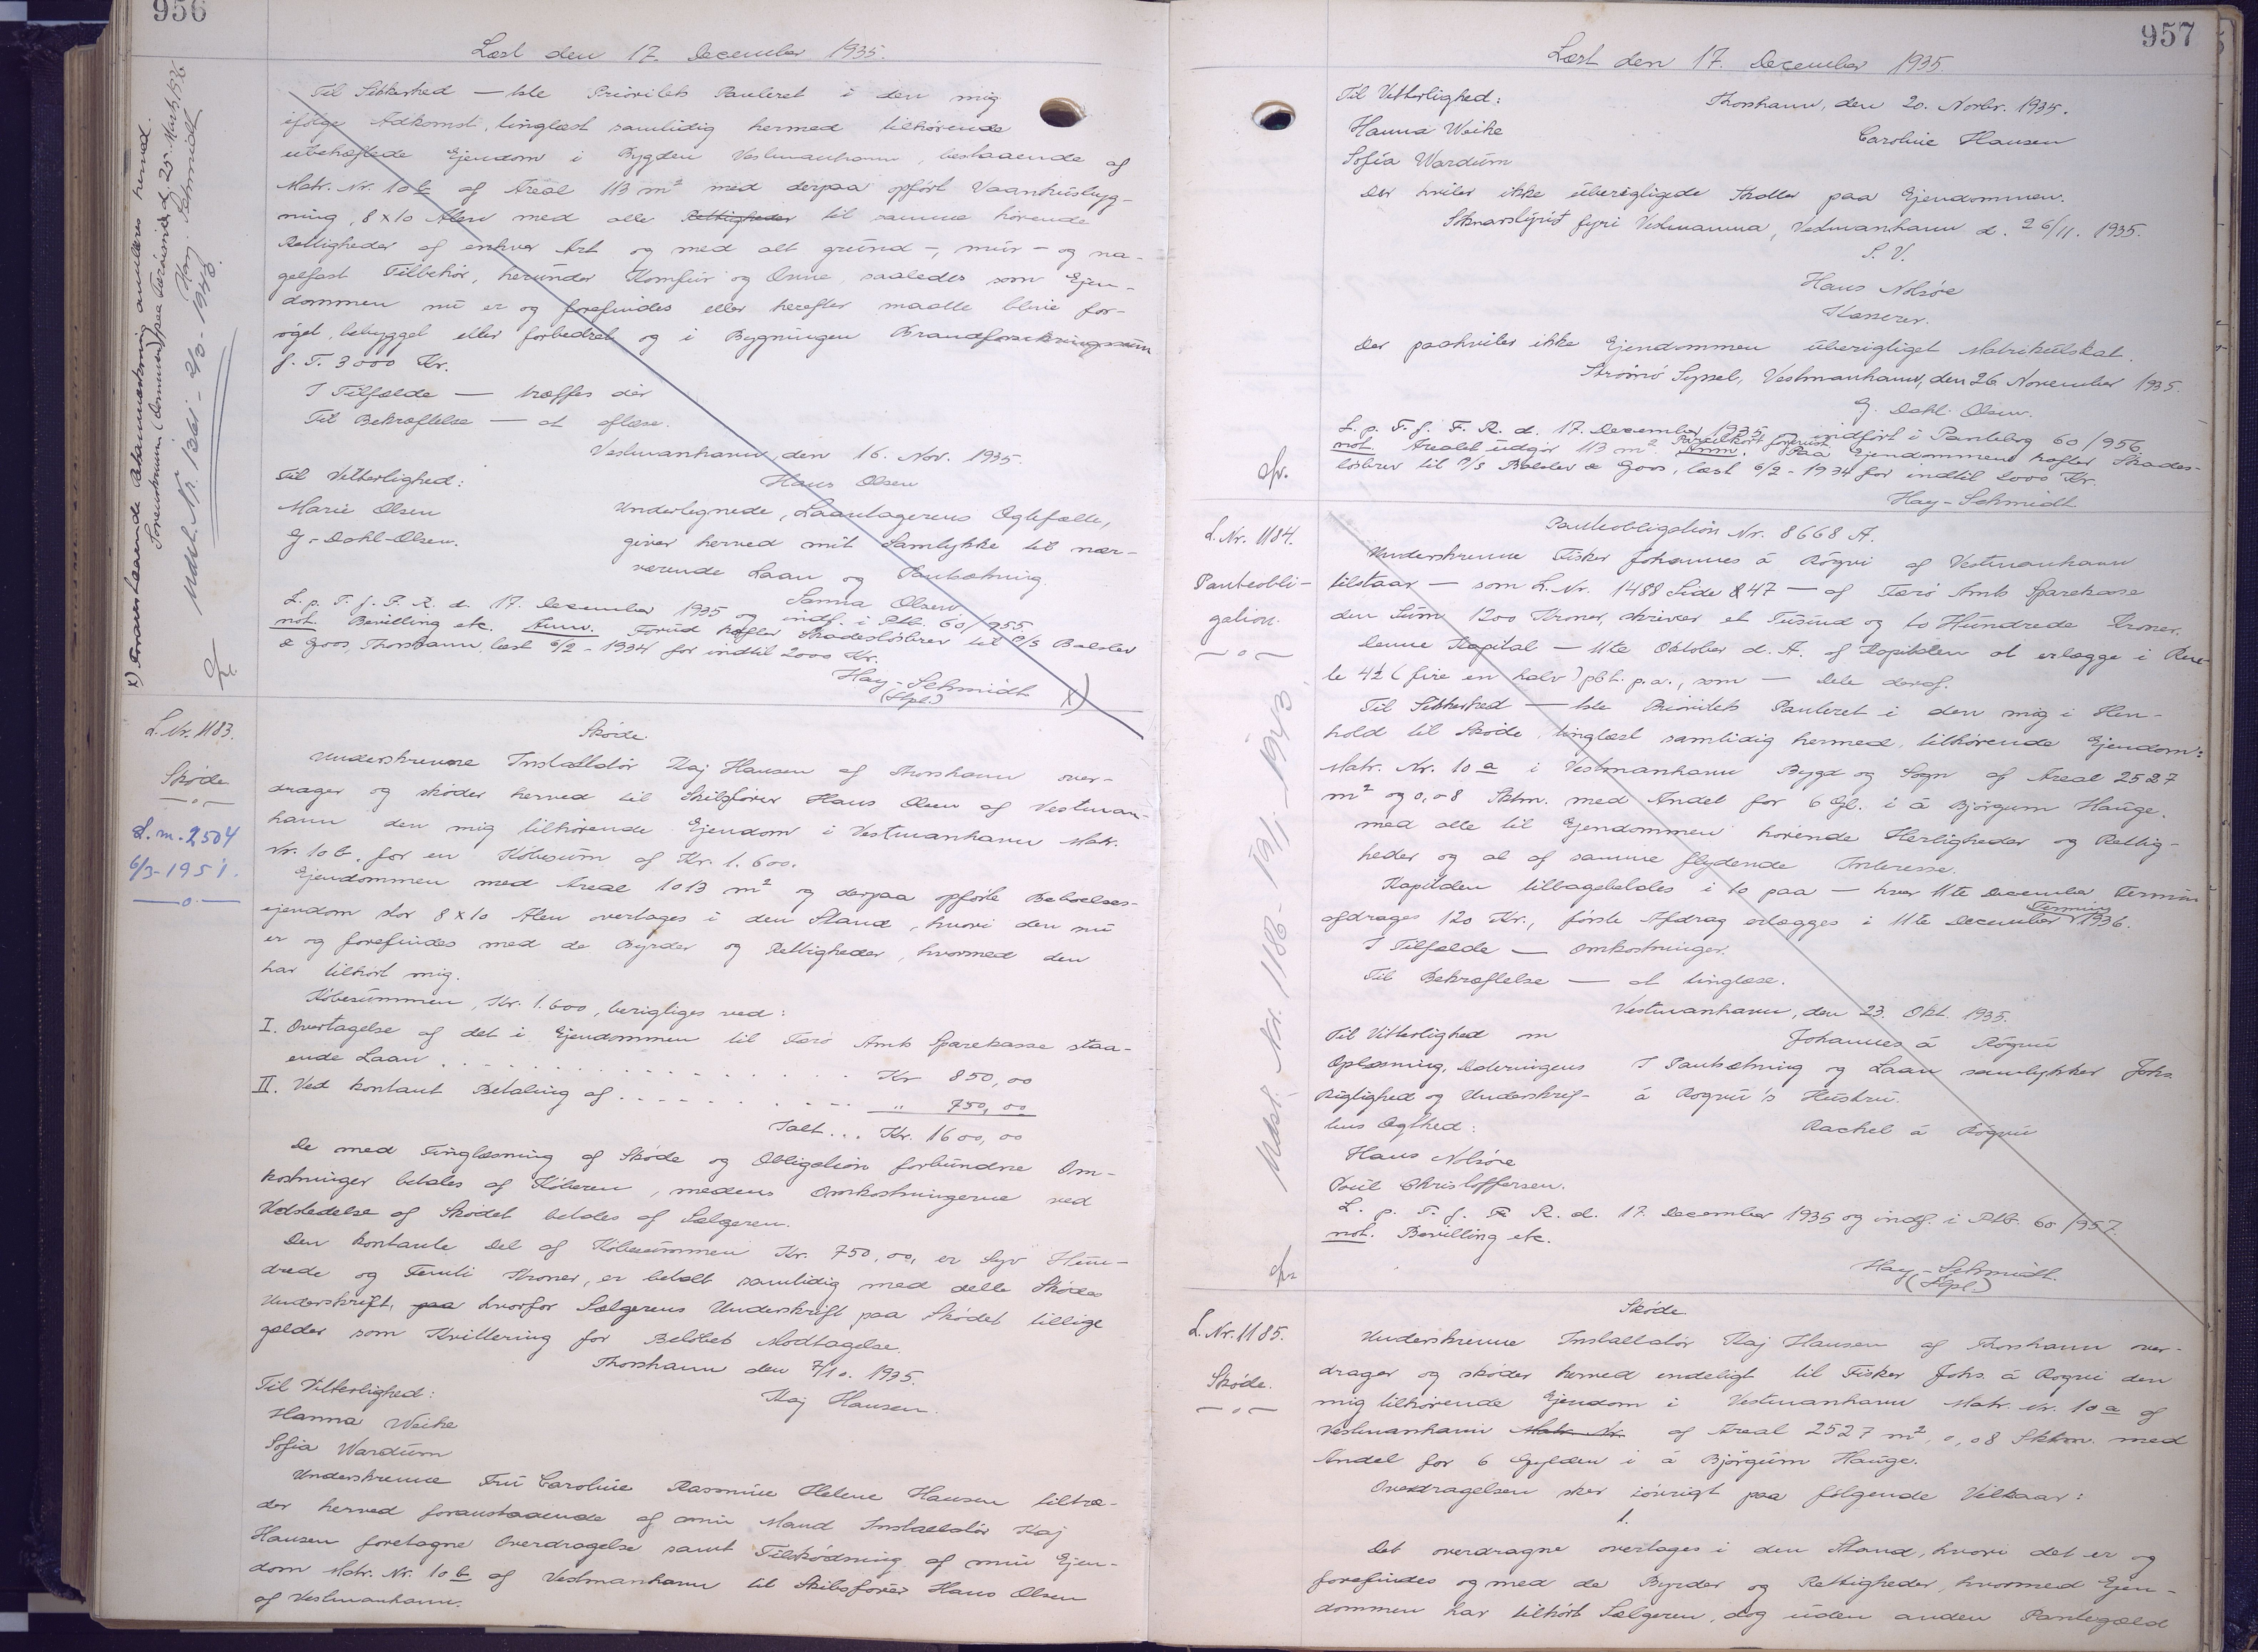 956
Læst den 17. December 1935.
Til Sikkerhed — 1ste Prioritets Panteret i den mig
ifölge Adkomst, tinglæst samtidig hermed tilhörende
ubehæftede Ejendom i Bygden Vestmanhavn, bestaaende af
Matr. Nr. 10 b af Areal 113 m² med derpaa opfört Vaaningsbyg-
ning, 8 x 10 Alen med alle Rettigheder til samme hörende
Rettigheder af enhver Art og med alt grund-, mur- og na-
gelfast Tilbehör, herunder Komfur og Ovne, saaledes som Ejen-
dommen nu er og forefindes eller herefter maatte blive for-
öget, bebygget eller forbedret og i Bygningen Brandforsikringssum
f. T. 3000 Kr.
I Tilfælde — træffes dér
Til Bekræftelse — at aflæse.
Vestmanhavn, den 16. Nov. 1935.
Til Vitterlighed: Hans Olsen
Marie Olsen Undertegnede, Laantagerens Ægtefælle,
G. Dahl-Olsen. giver herved mit Samtykke til nær-
værende Laan og Pantsætning.
Sanna Olsen
L. p. T. f. F. R. d. 17. December 1935 og indf. i Ptb. 60/955
not. Bevilling etc. Anm. Forud hæfter Skadeslösbrev til A/S Balslev
& Goos, Thorshavn, læst 6/2-1934 for indtil 2000 Kr.
Hay-Schmidt
(Stpl.) x)
x) Foranstaaende Retsanmærkning annulleres hermed.
Sorenskrivirin (Dommeren) paa Færöerne d. 25. Marts 1936
Hay-Schmidt
Udsl. Nr. 1361 - 2/3 - 1948.
L. Nr. 1183.
Skøde
L.m. 2504
6/3-1951.
Skøde.
Underskrevne Installatör Kaj Hansen af Thorshavn over-
drager og skøder herved til Skibsförer Hans Olsen af Vestman-
havn den mig tilhörende Ejendom i Vestmanhavn Matr.
Nr. 10 b. for en Köbesum af Kr. 1.600.
Ejendommen med Areal 1013 m² og derpaa opförte Beboelses-
ejendom stor 8 x 10 Alen overtages i den Stand, hvori den nu
er og forefindes med de Byrder og Rettigheder, hvormed den
har tilhört mig.
Köbesummen, Kr. 1.600, berigtiges ved:
I. Overtagelse af det i Ejendommen til Færö Amts Sparekasse staa-
ende Laan . . . . . . . . Kr 850,00
II. Ved kontant Betaling af . . . . . . . " 750,00
Ialt... Kr. 1600,00
De med Tinglæsning af Sköde og Obligation forbundne Om-
kostninger betales af Köberen, medens Omkostningerne ved
Udstedelse af Skødet betales af Sælgeren.
Den kontante Del af Köbesummen Kr. 750,00, er Syv Hun-
drede og Femti Kroner, er betalt samtidig med dette Skødes
Underskrift, paa hvorfor Sælgerens Underskrift paa Skødet tillige
gælder som Kvittering for Belöbet Modtagelse.
Thorshavn den 7/10. 1935.
Til Vitterlighed: Kaj Hansen.
Hanna Weihe
Sofia Wardum
Underskrevne Fru Caroline Rasmine Helene Hansen tiltræ-
der herved foranstaaende af min Mand Installatör Kaj
Hansen foretagne Overdragelse samt Tilskødning af min Ejen-
dom Matr. Nr. 10 b af Vestmanhavn til Skibsförer Hans Olsen
af Vestmanhavn.
957
Læst den 17. December 1935.
Til Vitterlighed: Thorshavn, den 20. Novbr. 1935.
Hanna Weihe Caroline Hansen
Sofia Wardum
Der hviler ikke uberigtigede Skatter paa Ejendommen.
Soknarstýrið fyri Vestmanna, Vestmanhavn d. 26/11. 1935.
S. V.
Hans Nolsöe
Kasserer.
Der paahviler ikke Ejendommen uberigtiget Matrikulskat.
Strömö Syssel, Vestmanhavn, den 26 November 1935.
G. Dahl Olsen.
L. p. T. f. F. R. d. 17. December 1935 indfört i Pantebog 60/956.
not. Arealet udgör 113 m² Parcelkort forevist. Anm. Paa Ejendommen hæfter Skades-
lösbrev til A/S Balslev & Goos, læst 6/2-1934 for indtil 2000 Kr.
Hay-Schmidt
L. Nr. 1184.
Panteobli-
gation.
Udsl. Nr. 1186 - 1943
Panteobligation Nr. 8668 A.
Underskrevne Fisker Johannes á Rógvu af Vestmanhavn
tilstaar — som L. Nr. 1488 Side 847 — af Færö Amts Sparekasse
den Sum 1200 Kroner, skriver et Tusind og to Hundrede Kroner.
Denne Kapital — 11te Oktober d. A. af Kapitalen at erlægge i Ren-
te 4½ (fire en halv) pCt. p.a., som — Dele deraf.
Til Sikkerhed — 1ste Prioritets Panteret i den mig i Hen-
hold til Sköde, tinglæst samtidig hermed, tilhörende Ejendom:
Matr. Nr. 10 a i Vestmanhavn Bygd og Sogn af Areal 2527
m² og 0,08 Sktm. med Andel for 6 Gl. i á Björgum Hauge.
med alle til Ejendommen hörende Herligheder og Rettig-
heder og al af samme flydende Interesse.
Kapitalen tilbagebetales i 10 paa — hver 11te December Termin
afdrages 120 Kr., förste Afdrag erlægges i 11te December Termin 1936.
I Tilfælde — Omkostninger.
Til Bekræftelse — at tinglæse.
Vestmanhavn, den 23. Okt. 1935.
Til Vitterlighed om Johannes á Rógvu
Oplæsning, Dateringens I Pantsætning og Laan samtykker Johs.
Rigtighed og Underskrif- á Rogvu's Hustru.
tens Ægthed: Rachel á Rógvu
Hans Nolsöe
Poul Christoffersen.
L. p. T. f. F. R. d. 17. December 1935 og indf. i Ptb. 60/957.
not. Bevilling etc.
Hay-Schmidt.
(Stpl.)
L. Nr. 1185.
Skøde.
Skøde
Underskrevne Installatör Kaj Hansen af Thorshavn over-
drager og skøder herved endeligt til Fisker Johs. á Rogvu den
mig tilhörende Ejendom i Vestmanhavn Matr. Nr. 10 a af
Vestmanhavn Matr. Nr. af Areal 2527 m², 0,08 Sktm. med
Andel for 6 Gylden i á Björgum Hauge.
Overdragelsen sker iövrigt paa fölgende Vilkaar:
1.
Det overdragne overtages i den Stand, hvori det er og
forefindes og med de Byrder og Rettigheder, hvormed Ejen-
dommen har tilhört Sælgeren, dog uden anden Pantegæld